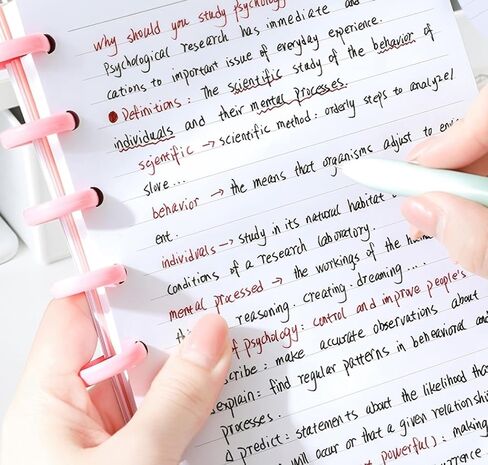 why should you study psychology
Psychological research has immediate and
cations to important issue of everyday experience.
● Definitions: The scientific study of the behavior of
individuals and their mental processes.
scientific → scientific method: orderly steps to analyze/
slove...
behavior → the means that organisms adjust to
ent.
individuals → study in its natural habitat
conditions of a research laboratory.
mental processed → the workings of the
reasoning. creating. dreaming....
psychology: control and improve people's
make accurate observations about
explain: find regular patterns in behavioral and
processes.
Δ predict: statements about the likelihood
will occur or that a given relationship
powerful): making